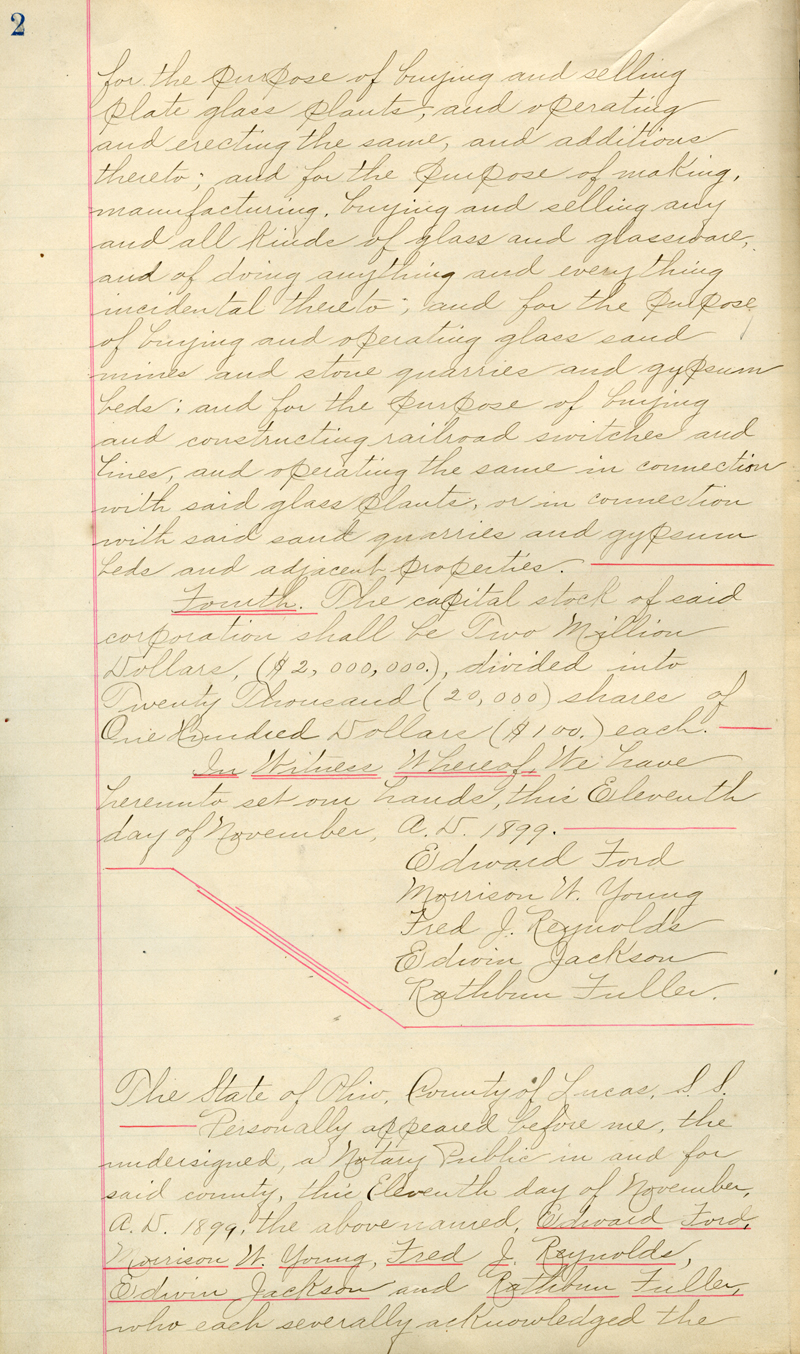 2
for the purpose of buying and selling
plate glass plants, and operating
and erecting the same, and additions
thereto; and for the purpose of making,
manufacturing, buying and selling any
and all kinds of glass and glassware,
and of doing anything and everything
incidental thereto; and for the purpose
of buying and operating glass sand
mines and stone quarries and gypsum
beds; and for the purpose of buying
and constructing railroad switches and
lines, and operating the same in connection
with said glass plants, or in connection
with said sand quarries and gypsum
beds and adjacent properties.
Fourth. The capital stock of said
corporation shall be Two Million
Dollars, ($2,000,000.), divided into
Twenty Thousand (20,000) shares of
One Hundred Dollars ($100.) each.
In Witness Whereof, We have
hereunto set our hands, this Eleventh
day of November, A.D. 1899.
Edward Ford
Morrison W. Young
Fred J. Reynolds
Edwin Jackson
Rathbun Fuller.
The State of Ohio, County of Lucas, S.S.
Personally appeared before me, the
undersigned, a Notary Public in and for
said county, this Eleventh day of November,
A.D. 1899, the above named, Edward Ford,
Morrison W. Young, Fred J. Reynolds,
Edwin Jackson and Rathbun Fuller,
who each severally acknowledged the